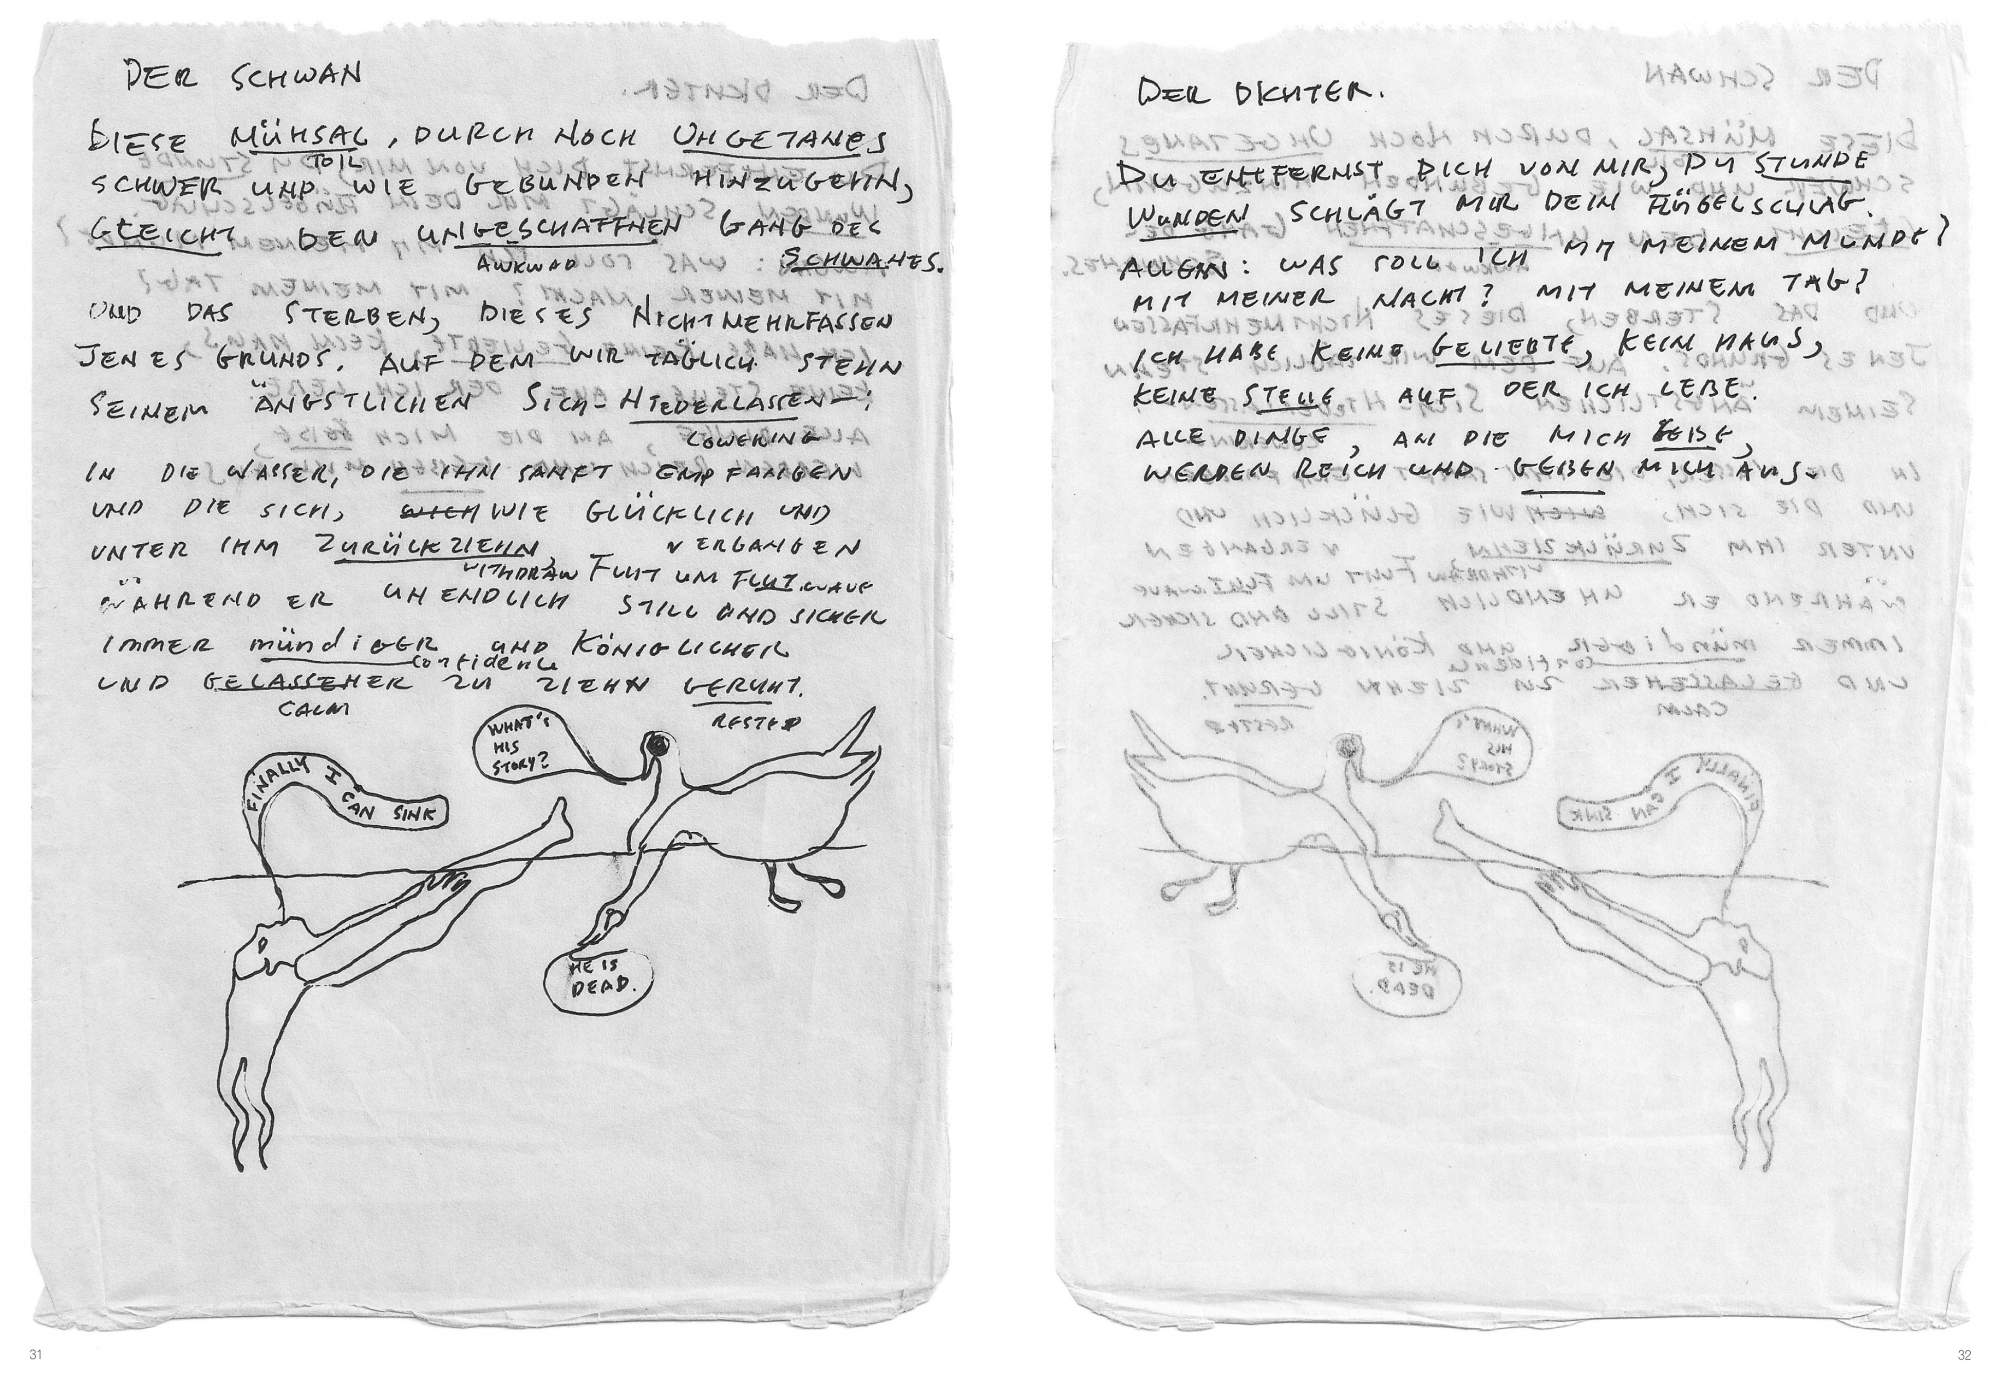 DER SCHWAN
DIESE MÜHSAL, DURCH NOCH UNGETANES
TOIL
SCHWER UND WIE GEBUNDEN HINZUGEHN,
GLEICHT DEM UNGESCHAFFNEN GANG DES
SCHWANES.
AWKWAD
UND DAS STERBEN, DIESES NICHTMEHRFASSEN
JENES GRUNDS, AUF DEM WIR TÄGLICH STEHN
SEINEM ÄNGSTLICHEN SICH-NIEDERLASSEN—:
LOWERING
IN DIE WASSER, DIE IHN SANFT EMPFANGEN
UND DIE SICH, WIE GLÜCKLICH UND
VERGANGEN
UNTER IHM ZURÜCKZIEHN,
WITHDRAW FLUT UM FLUT. WAVE
WÄHREND ER UNENDLICH STILL UND SICHER
IMMER mündiGER UND KÖNIGLICHER
confidence
UND GELASSENER ZU ZIEHN GERUHT.
CALM
RESTED
WHAT'S
HIS
STORY?
FINALLY I CAN SINK
HE IS
DEAD.
31
DER DICHTER.
DU ENTFERNST DICH VON MIR, DU STUNDE
WUNDEN SCHLÄGT MIR DEIN FLÜGELSCHLAG.
ALLEIN: WAS SOLL ICH MIT MEINEM MUNDE?
MIT MEINER NACHT? MIT MEINEM TAG?
ICH HABE KEINE GELIEBTE, KEIN HAUS,
KEINE STELLE AUF DER ICH LEBE.
ALLE DINGE, AN DIE MICH
WERDEN REICH UND GEBEN MICH AUS.
32